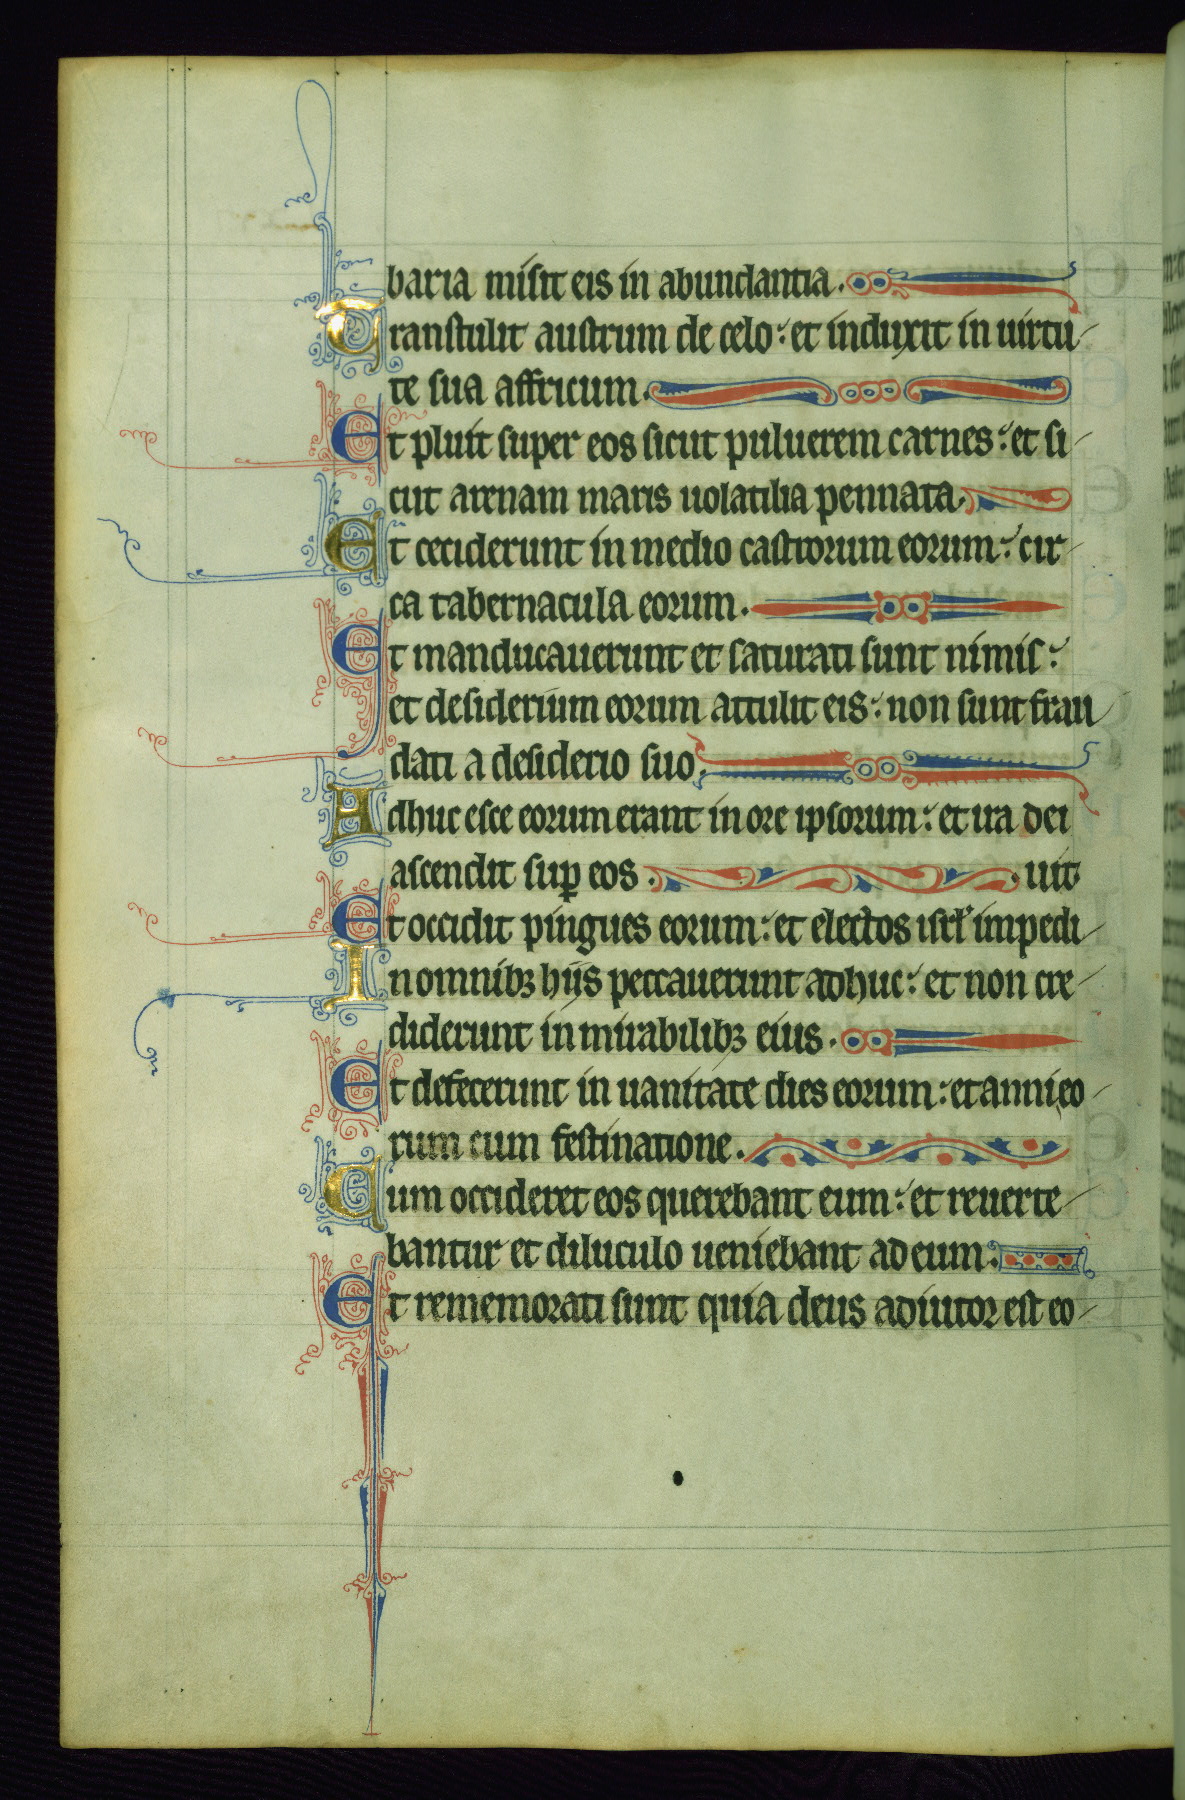 baria misit eis in abundantia.
Transtulit austrum de celo: et induxit in uirtu
te sua affricum.
Et pluit super eos sicut puluerem carnes: et si
cut arenam maris uolatilia pennata.
Et ceciderunt in medio castrorum eorum: cir
ca tabernacula eorum.
Et manducauerunt et saturati sunt nimis:
et desiderium eorum attulit eis: non sunt frau
dati a desiderio suo.
Adhuc esce eorum erant in ore ipsorum: et ira dei
ascendit sup̱ eos. uit
Et occidit pingues eorum: et electos isrl' impedi
In omnibꝫ hijs peccauerunt adhuc: et non cre
diderunt in mirabilibꝫ eius.
Et defecerunt in uanitate dies eorum: et anni eo
rum cum festinatione.
Cum occideret eos querebant eum: et reuerte
bantur et diluculo ueniebant ad eum.
Et rememorati sunt quia deus adiutor est eo